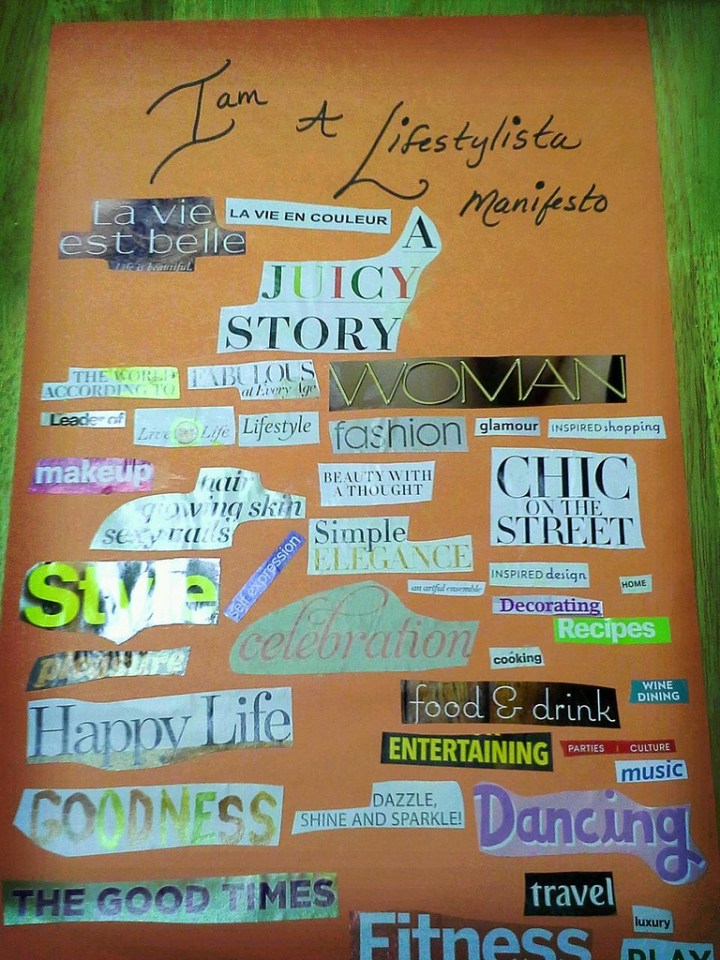 I am A Lifestylista
Manifesto
La vie
est belle
Life is beautiful.
LA VIE EN COULEUR
A
JUICY
STORY
THE WORLD
ACCORDING TO
FABULOUS
at Every Age
WOMAN
Leader of
Live Life
Lifestyle
fashion
glamour
INSPIRED shopping
makeup
hair
glowing skin
sexy nails
BEAUTY WITH
A THOUGHT
CHIC
ON THE
STREET
Simple
ELEGANCE
self expression
Style
an artful ensemble
INSPIRED design
HOME
Decorating
Recipes
celebration
cooking
pleasure
food & drink
WINE
DINING
Happy Life
ENTERTAINING
PARTIES | CULTURE
music
GOODNESS
DAZZLE,
SHINE AND SPARKLE!
Dancing
THE GOOD TIMES
travel
luxury
Fitness
PLAY